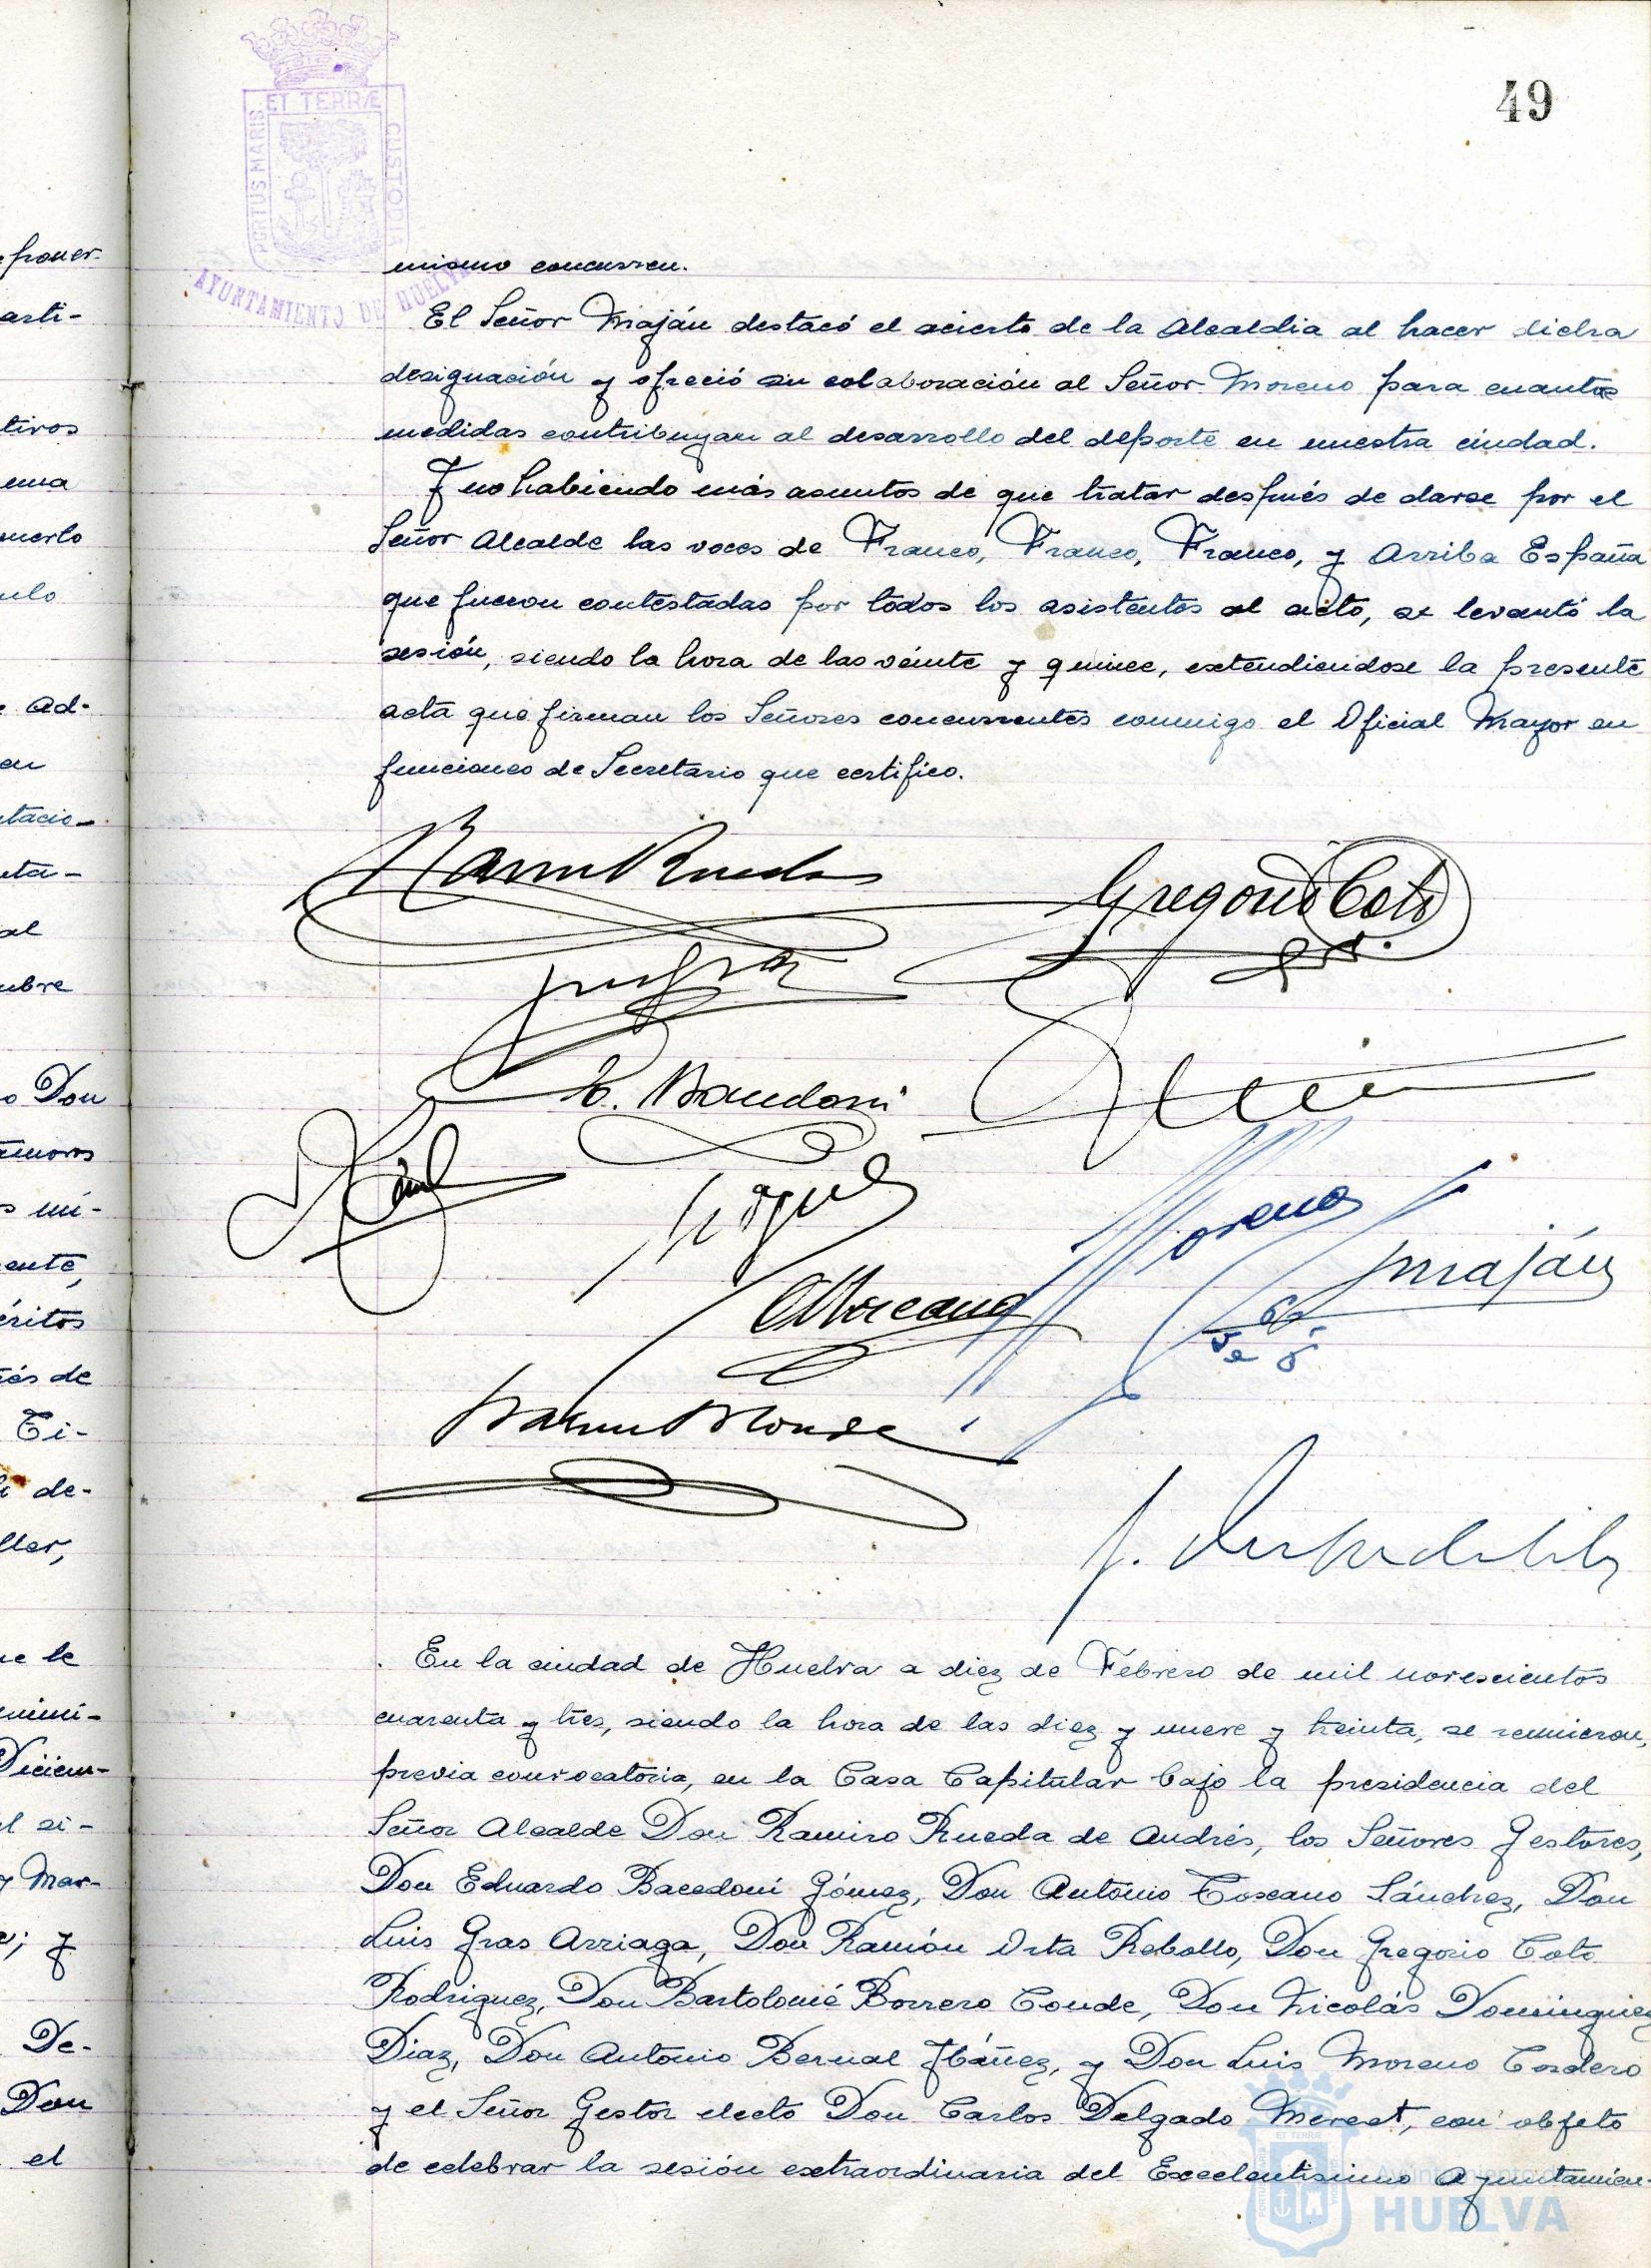 49
ET TERRÆ
PORTUS MARIS
CUSTODIA
AYUNTAMIENTO DE HUELVA
mismo concurren.
El Señor Maján destacó el acierto de la Alcaldia al hacer dicha
designación y ofreció su colaboración al Señor Moreno para cuantas
medidas contribuyan al desarrollo del deporte en nuestra ciudad.
Y no habiendo más asuntos de que tratar después de darse por el
Señor Alcalde las voces de Franco, Franco, Franco, y Arriba España
que fueron contestadas por todos los asistentes al acto, se levantó la
sesión, siendo la hora de las veinte y quince, extendiendose la presente
acta que firman los Señores concurrentes conmigo el Oficial Mayor en
funciones de Secretario que certifico.
Gregorio Coto
Moreno
Maján
En la ciudad de Huelva a diez de Febrero de mil novescientos
cuarenta y tres, siendo la hora de las diez y nueve y treinta, se reunieron,
previa convocatoria, en la Casa Capitular bajo la presidencia del
Señor Alcalde Don Ramiro Rueda de Andrés, los Señores Gestores,
Don Eduardo Bacedoni Gómez, Don Antonio Toscano Sánchez, Don
Luis Gras Arriaga, Don Ramón Orta Rebollo, Don Gregorio Coto
Rodriguez, Don Bartolomé Borrero Conde, Don Nicolás Dominguez
Diaz, Don Antonio Bernal Ibáñez, y Don Luis Moreno Cordero
y el Señor Gestor electo Don Carlos Delgado Mercet, con objeto
de celebrar la sesión extraordinaria del Excelentisimo Ayuntamien-
HUELVA